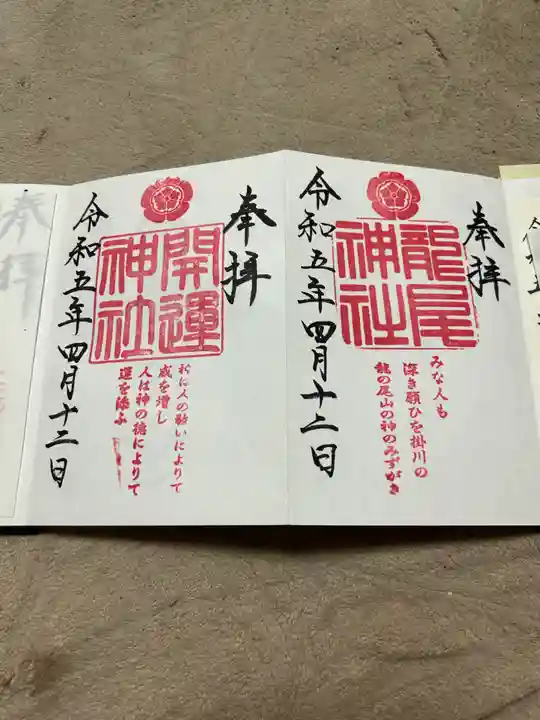 奉拝
龍尾
神社
みな人も
深き願ひを掛川の
龍の尾山の神のみずがき
令和五年四月十二日
奉拝
開運
神社
神は人の敬いによりて
威を増し
人は神の徳によりて
運を添ふ
令和五年四月十二日
奉拝